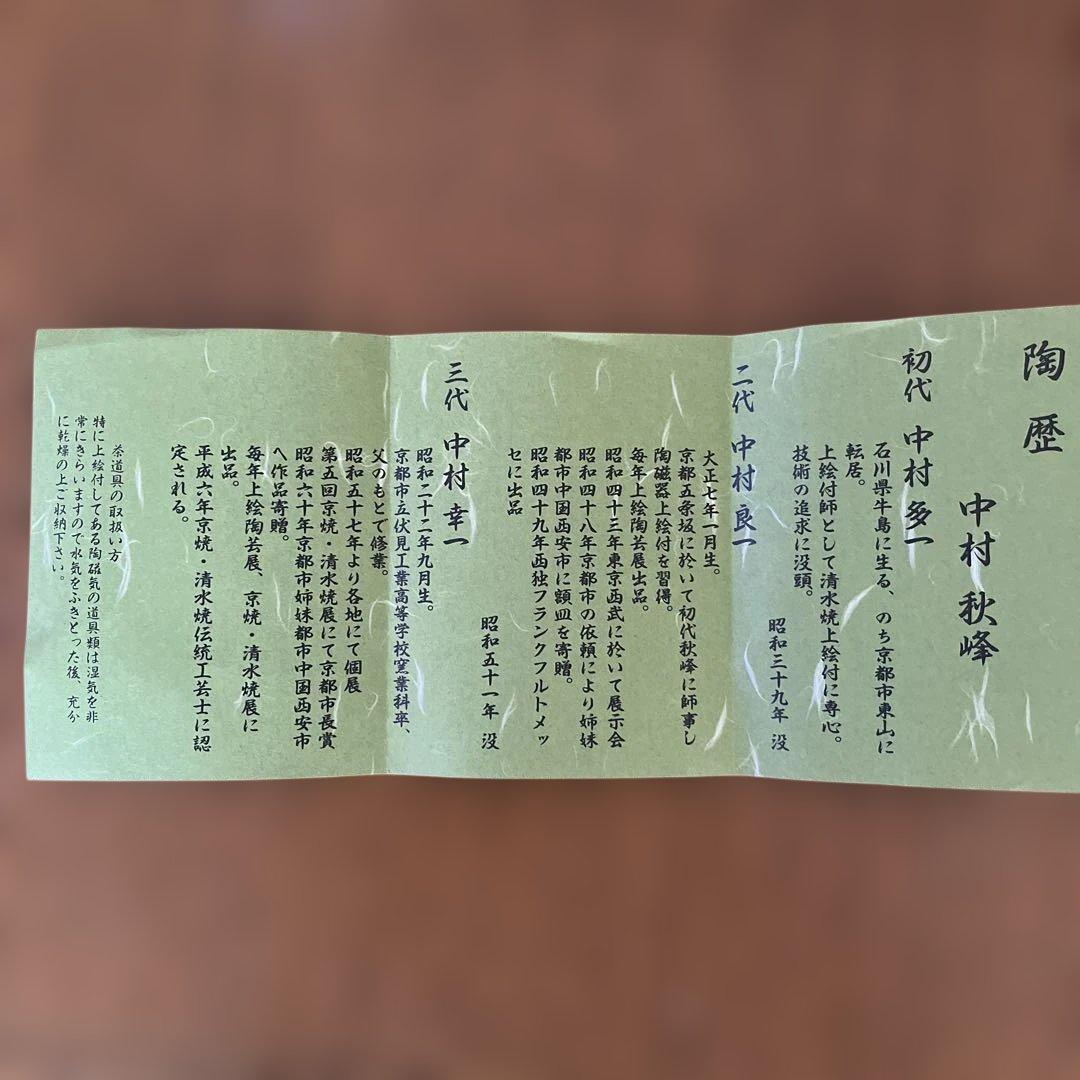 陶歴
中村 秋峰
初代 中村 多一
石川県牛島に生る、のち京都市東山に
転居。
上絵付師として清水焼上絵付に専心。
技術の追求に没頭。
昭和三十九年 没
二代 中村 良一
大正七年一月生。
京都五条坂に於いて初代秋峰に師事し
陶磁器上絵付を習得。
毎年上絵陶芸展出品。
昭和四十三年東京西武に於いて展示会
昭和四十八年京都市の依頼により姉妹
都市中国西安市に額皿を寄贈。
昭和四十九年西独フランクフルトメッ
セに出品
昭和五十一年 没
三代 中村 幸一
昭和二十二年九月生。
京都市立伏見工業高等学校窯業科卒、
父のもとで修業。
昭和五十七年より各地にて個展
第五回京焼・清水焼展にて京都市長賞
昭和六十年京都市姉妹都市中国西安市
へ作品寄贈。
毎年上絵陶芸展、京焼・清水焼展に
出品。
平成六年京焼・清水焼伝統工芸士に認
定される。
茶道具の取扱い方
特に上絵付してある陶磁気の道具類は湿気を非
常にきらいますので水気をふきとった後、充分
に乾燥の上ご収納下さい。